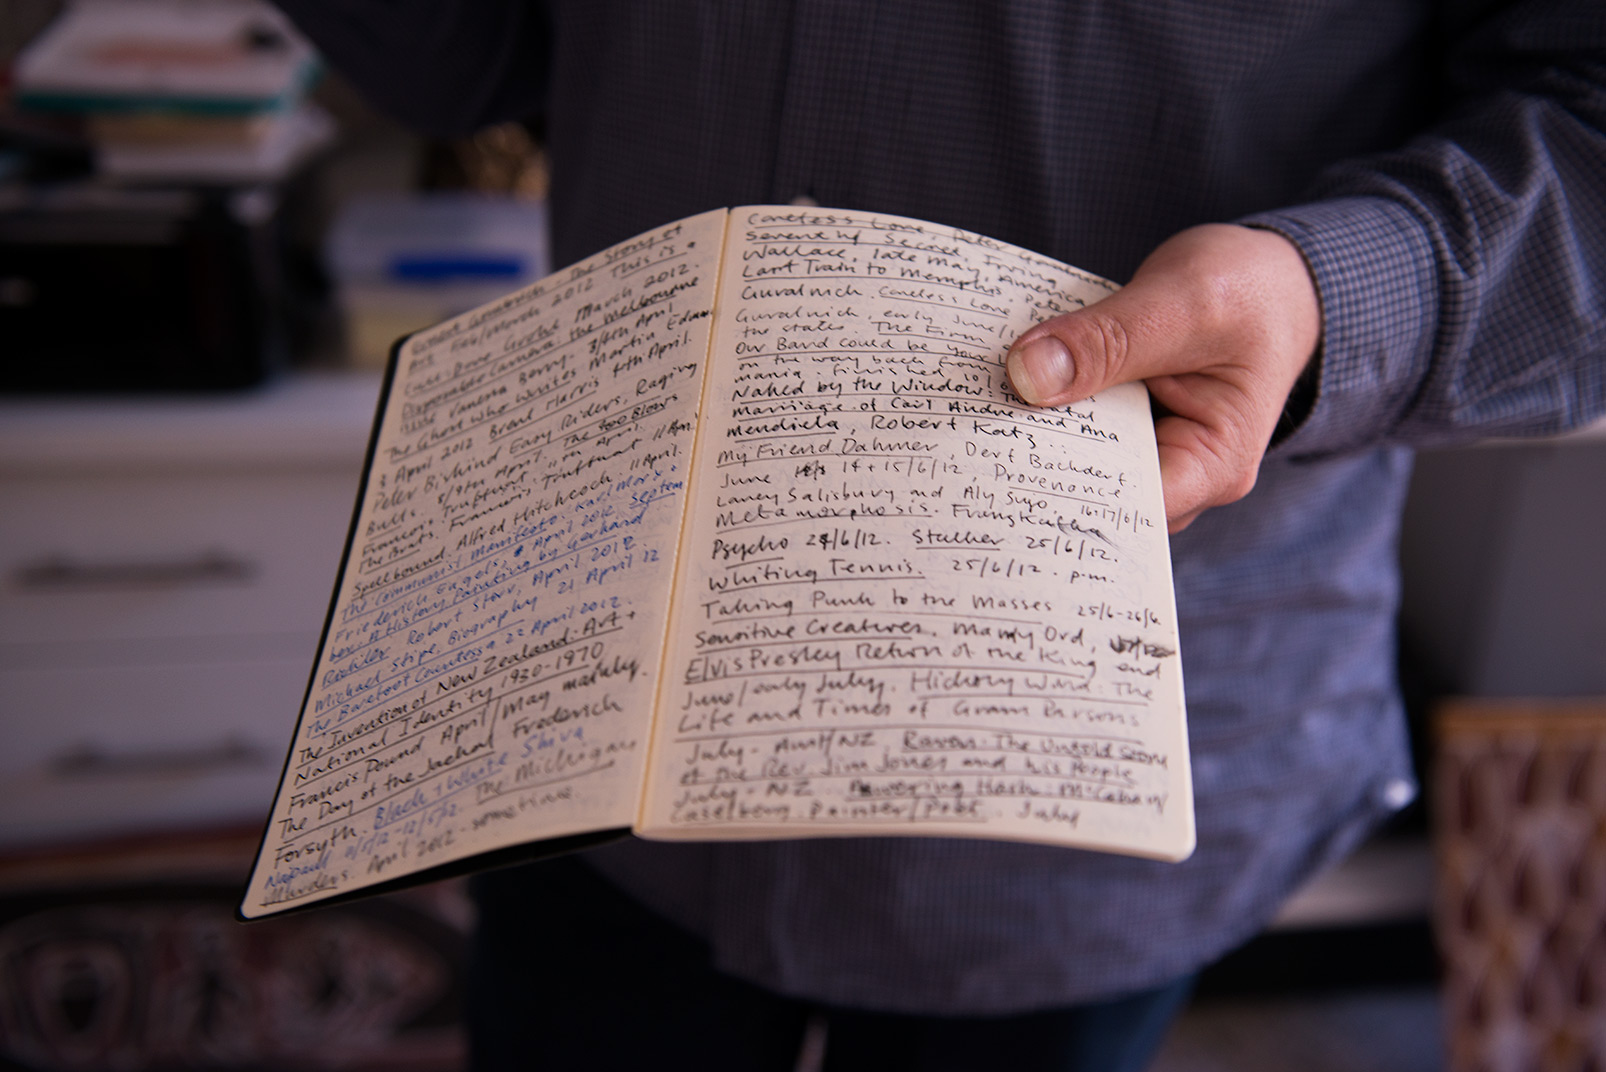 2012 This is a
Feb/March
March 2012.
Disposable Camera, the Melbourne
Vanessa Berry. 3/4th April
The Ghost Who Writes Martin
3 April 2012 Brent Harris 4th April.
Peter Biskind Easy Riders, Raging
Bulls. 8/9th April. The 400 Blows
Francois Truffaut " " April.
The Brats. Francois Truffaut 11 Apr.
Spellbound. Alfred Hitchcock 11 April.
The Communist Manifesto. Karl Marx +
Friederich Engels, April 2012. Septem
ber. A History Painting by Gerhard
Richter Robert Storr, April 2012
Michael Stipe, Biography 21 April 12
The Barefoot Countessa 22 April 2012.
The Invention of New Zealand: Art +
National Identity 1930-1970
Francis Pound April/May
The Day of the Jackal Frederick
Forsyth. Black + White Shiva
Naipaul 9/5/12-12/5/12. The Michigan
Murders. April 2012 - sometime.
Careless Love. Peter
Seventh Secret, Irving
Wallace, late May, America
Last Train to Memphis. Peter
Guralnich. Careless Love Pe
Guralnich, early June/
the states. The Firm
Our Band could be your
on the way back from
mania. finished 10/6
Naked by the Window: The
marriage of Carl Andre and Ana
Mendiela, Robert Katz
My Friend Dahmer, Derf Backderf.
June 14+15/6/12, Provenance
Laney Salisbury and Aly Sujo. 16+17/6/12
Metamorphosis. Franz Kafka
Psycho 24/6/12. Stalker 25/6/12.
Whiting Tennis. 25/6/12. p.m.
Taking Punk to the Masses 25/6-26/6.
Sensitive Creatures. Mandy Ord,
Elvis Presley Return of the King end
June/early July. Hickory Wind: The
Life and Times of Gram Parsons
July - Aust/NZ. Raven: The Untold Story
of the Rev Jim Jones and his People
July - NZ. Answering Hark: McCahon/
Caselberg. Painter/Poet. July